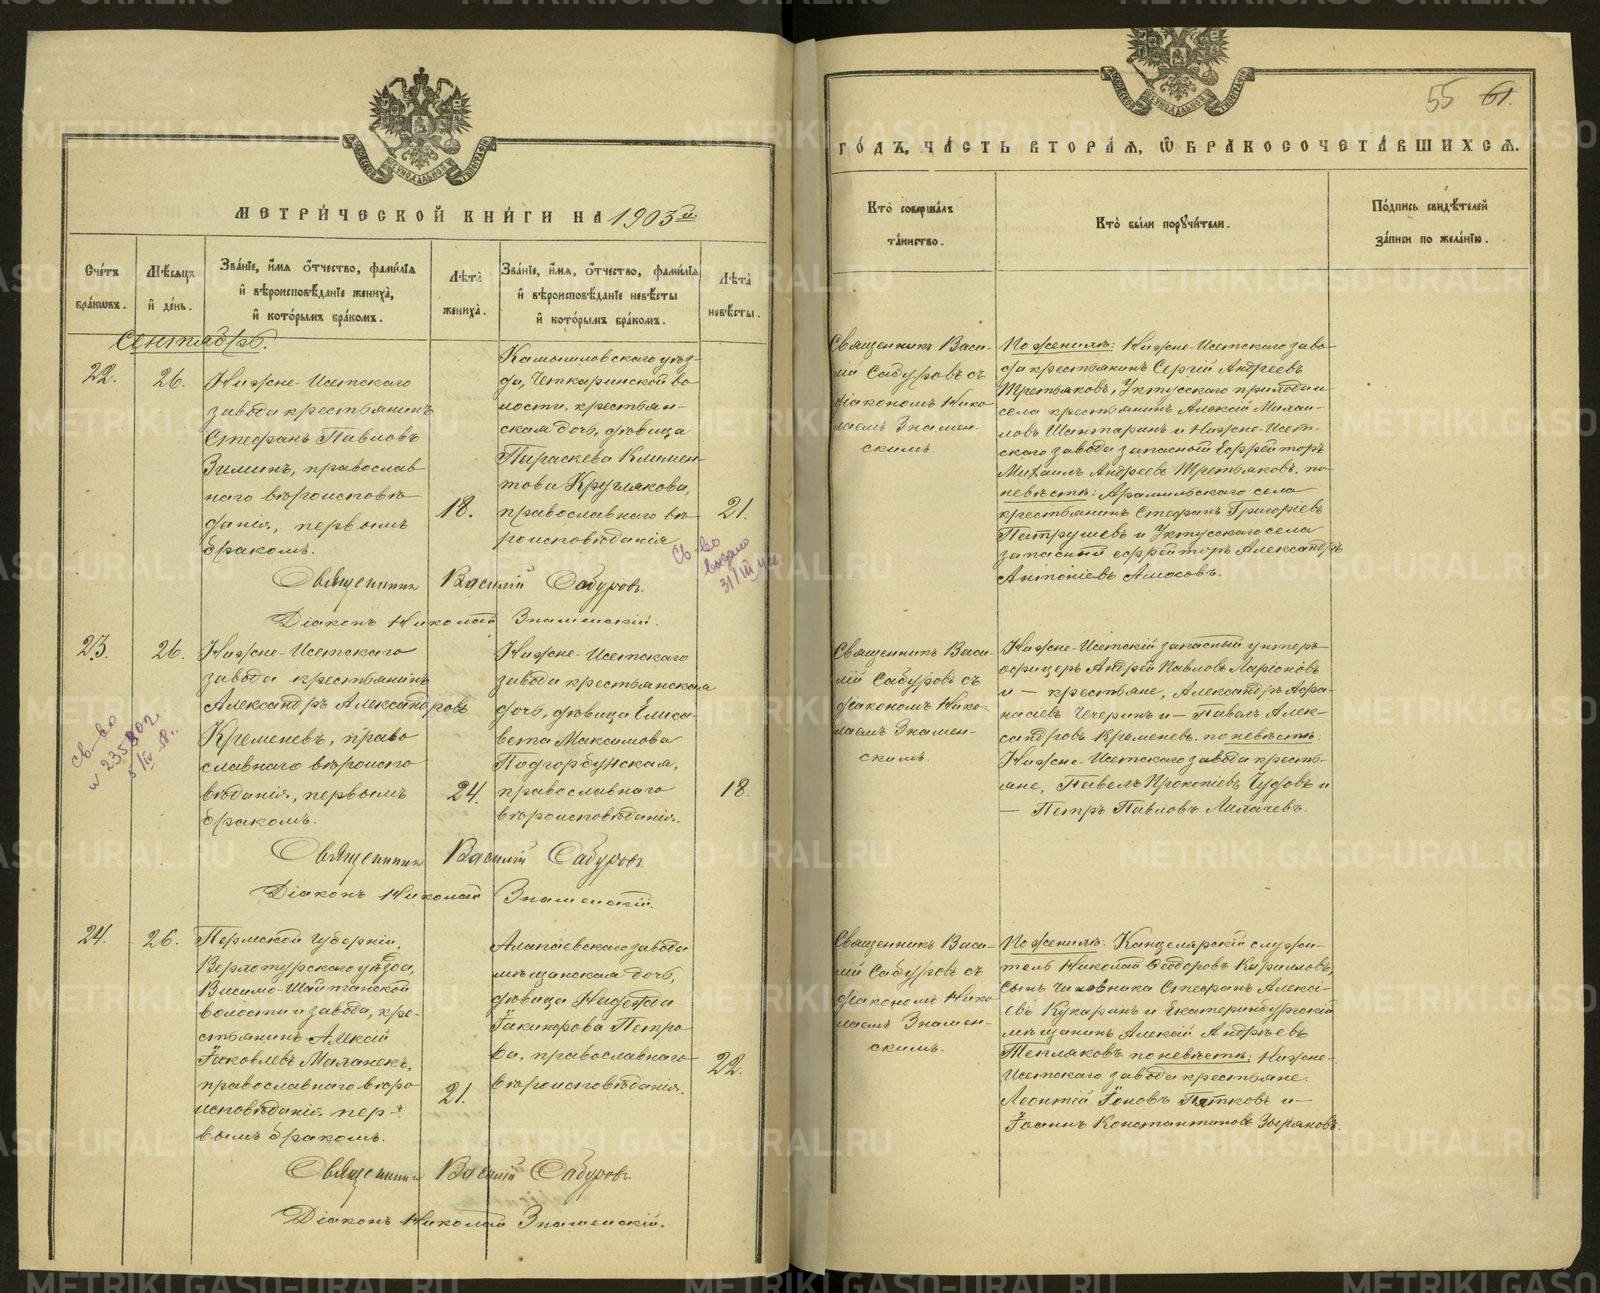 МЕТРИ́ЧЕСКОЙ КНИ́ГИ НА 1903й
Сче́тъ бра́ковъ.
Мѣ́сяцъ и҆ де́нь.
Зва́нїе, и҆́мя ѻ҆́тчество, фамі́лїя и҆ вѣроисповѣ́данїе жениха̀, и҆ кото́рымъ бра́комъ.
Лѣ́та жениха̀.
Зва́нїе, и҆́мя, ѻ҆́тчество, фамі́лїя и҆ вѣроисповѣ́данїе невѣ́сты и҆ кото́рымъ бра́комъ.
Лѣ́та невѣ́сты.
Сентябрь.
22.
26.
Нижне-Исетскаго
завода крестьянинъ
Стефанъ Павловъ
Зиминъ, православ
наго вѣроисповѣ
данія, первымъ
бракомъ.
18.
Камышловскаго уѣз-
да, Четкаринской во
лости, крестьян-
ская дочь, дѣвица
Параскева Климен
това Круглякова,
православнаго вѣ
роисповѣданія
21.
Св-во
выдано
31/III
Священникъ Василій Сабуровъ.
Діаконъ Николай Знаменскій.
23.
26.
Нижне-Исетскаго
завода крестьянинъ
Александръ Александровъ
Кременевъ, право
славнаго вѣроиспо
вѣданія, первымъ
бракомъ.
24.
Нижне-Исетскаго
завода крестьянская
дочь, дѣвица Елиса-
вета Максимова
Подгорбунская,
православнаго
вѣроисповѣданія.
18.
Св-во
Священникъ Василій Сабуровъ.
Діаконъ Николай Знаменскій.
24.
26.
Пермской губерніи,
Верхотурскаго уѣзда,
Висимо-Шайтанской
волости и завода, кре-
стьянинъ Алексій
Іаковлевъ Маханекъ,
православнаго вѣро
исповѣданія пер-
вымъ бракомъ.
21.
Алапаевскаго завода
мѣщанская дочь,
дѣвица Надежда
Никифорова Петро-
ва, православнаго
вѣроисповѣданія.
22.
Священникъ Василій Сабуровъ.
Діаконъ Николай Знаменскій.
55 61.
ГО́ДЪ, ЧА́СТЬ ВТОРА́Я, Ѡ҆ БРАКОСОЧЕТА́ВШИХСЯ.
Кто̀ соверша́лъ та́инство.
Кто̀ бы́ли поручи́тели.
По́дпись свидѣ́телей за́писи по жела́нїю.
Священникъ Васи-
лій Сабуровъ съ
діакономъ Нико
лаемъ Знамен-
скимъ.
По женихѣ: Нижне-Исетскаго заво
да крестьянинъ Сергій Андреевъ
Третьяковъ, Уктусскаго прихода и
села крестьянинъ Алексій Михаи-
ловъ Шантаринъ и Нижне-Исет-
скаго завода запасной Ефрейторъ
Михаилъ Андреевъ Третьяковъ. по
невѣстѣ: Арамильскаго села
крестьянинъ Стефанъ Григоріевъ
Патрушевъ и Уктусскаго села
запасный ефрейторъ Александръ
Антоніевъ Амосовъ.
Священникъ Васи-
лій Сабуровъ съ
діакономъ Нико-
лаемъ Знамен-
скимъ.
Нижне-Исетскій запасный унтеръ-
офицеръ Андрей Павловъ Ларіоновъ
и — крестьяне, Александръ Афа-
насіевъ Чечеринъ и — Павелъ Алек-
сандровъ Кременевъ. по невѣстѣ:
Нижне-Исетскаго завода кресть-
яне, Павелъ Прокопіевъ Чудовъ и
— Петръ Павловъ Лихачевъ.
Священникъ Васи-
лій Сабуровъ съ
діакономъ Нико
лаемъ Знамен-
скимъ.
По женихѣ: Канцелярскій служи-
тель Николай Феодоровъ Кирилловъ,
сынъ чиновника Стефанъ Алексі-
евъ Кукаринъ и Екатеринбургскій
мѣщанинъ Алексій Андреевъ
Тепляковъ по невѣстѣ: Нижне-
Исетскаго завода крестьяне.
Леонтій Іоновъ Пятковъ и —
Іоаннъ Константиновъ Зыряновъ.